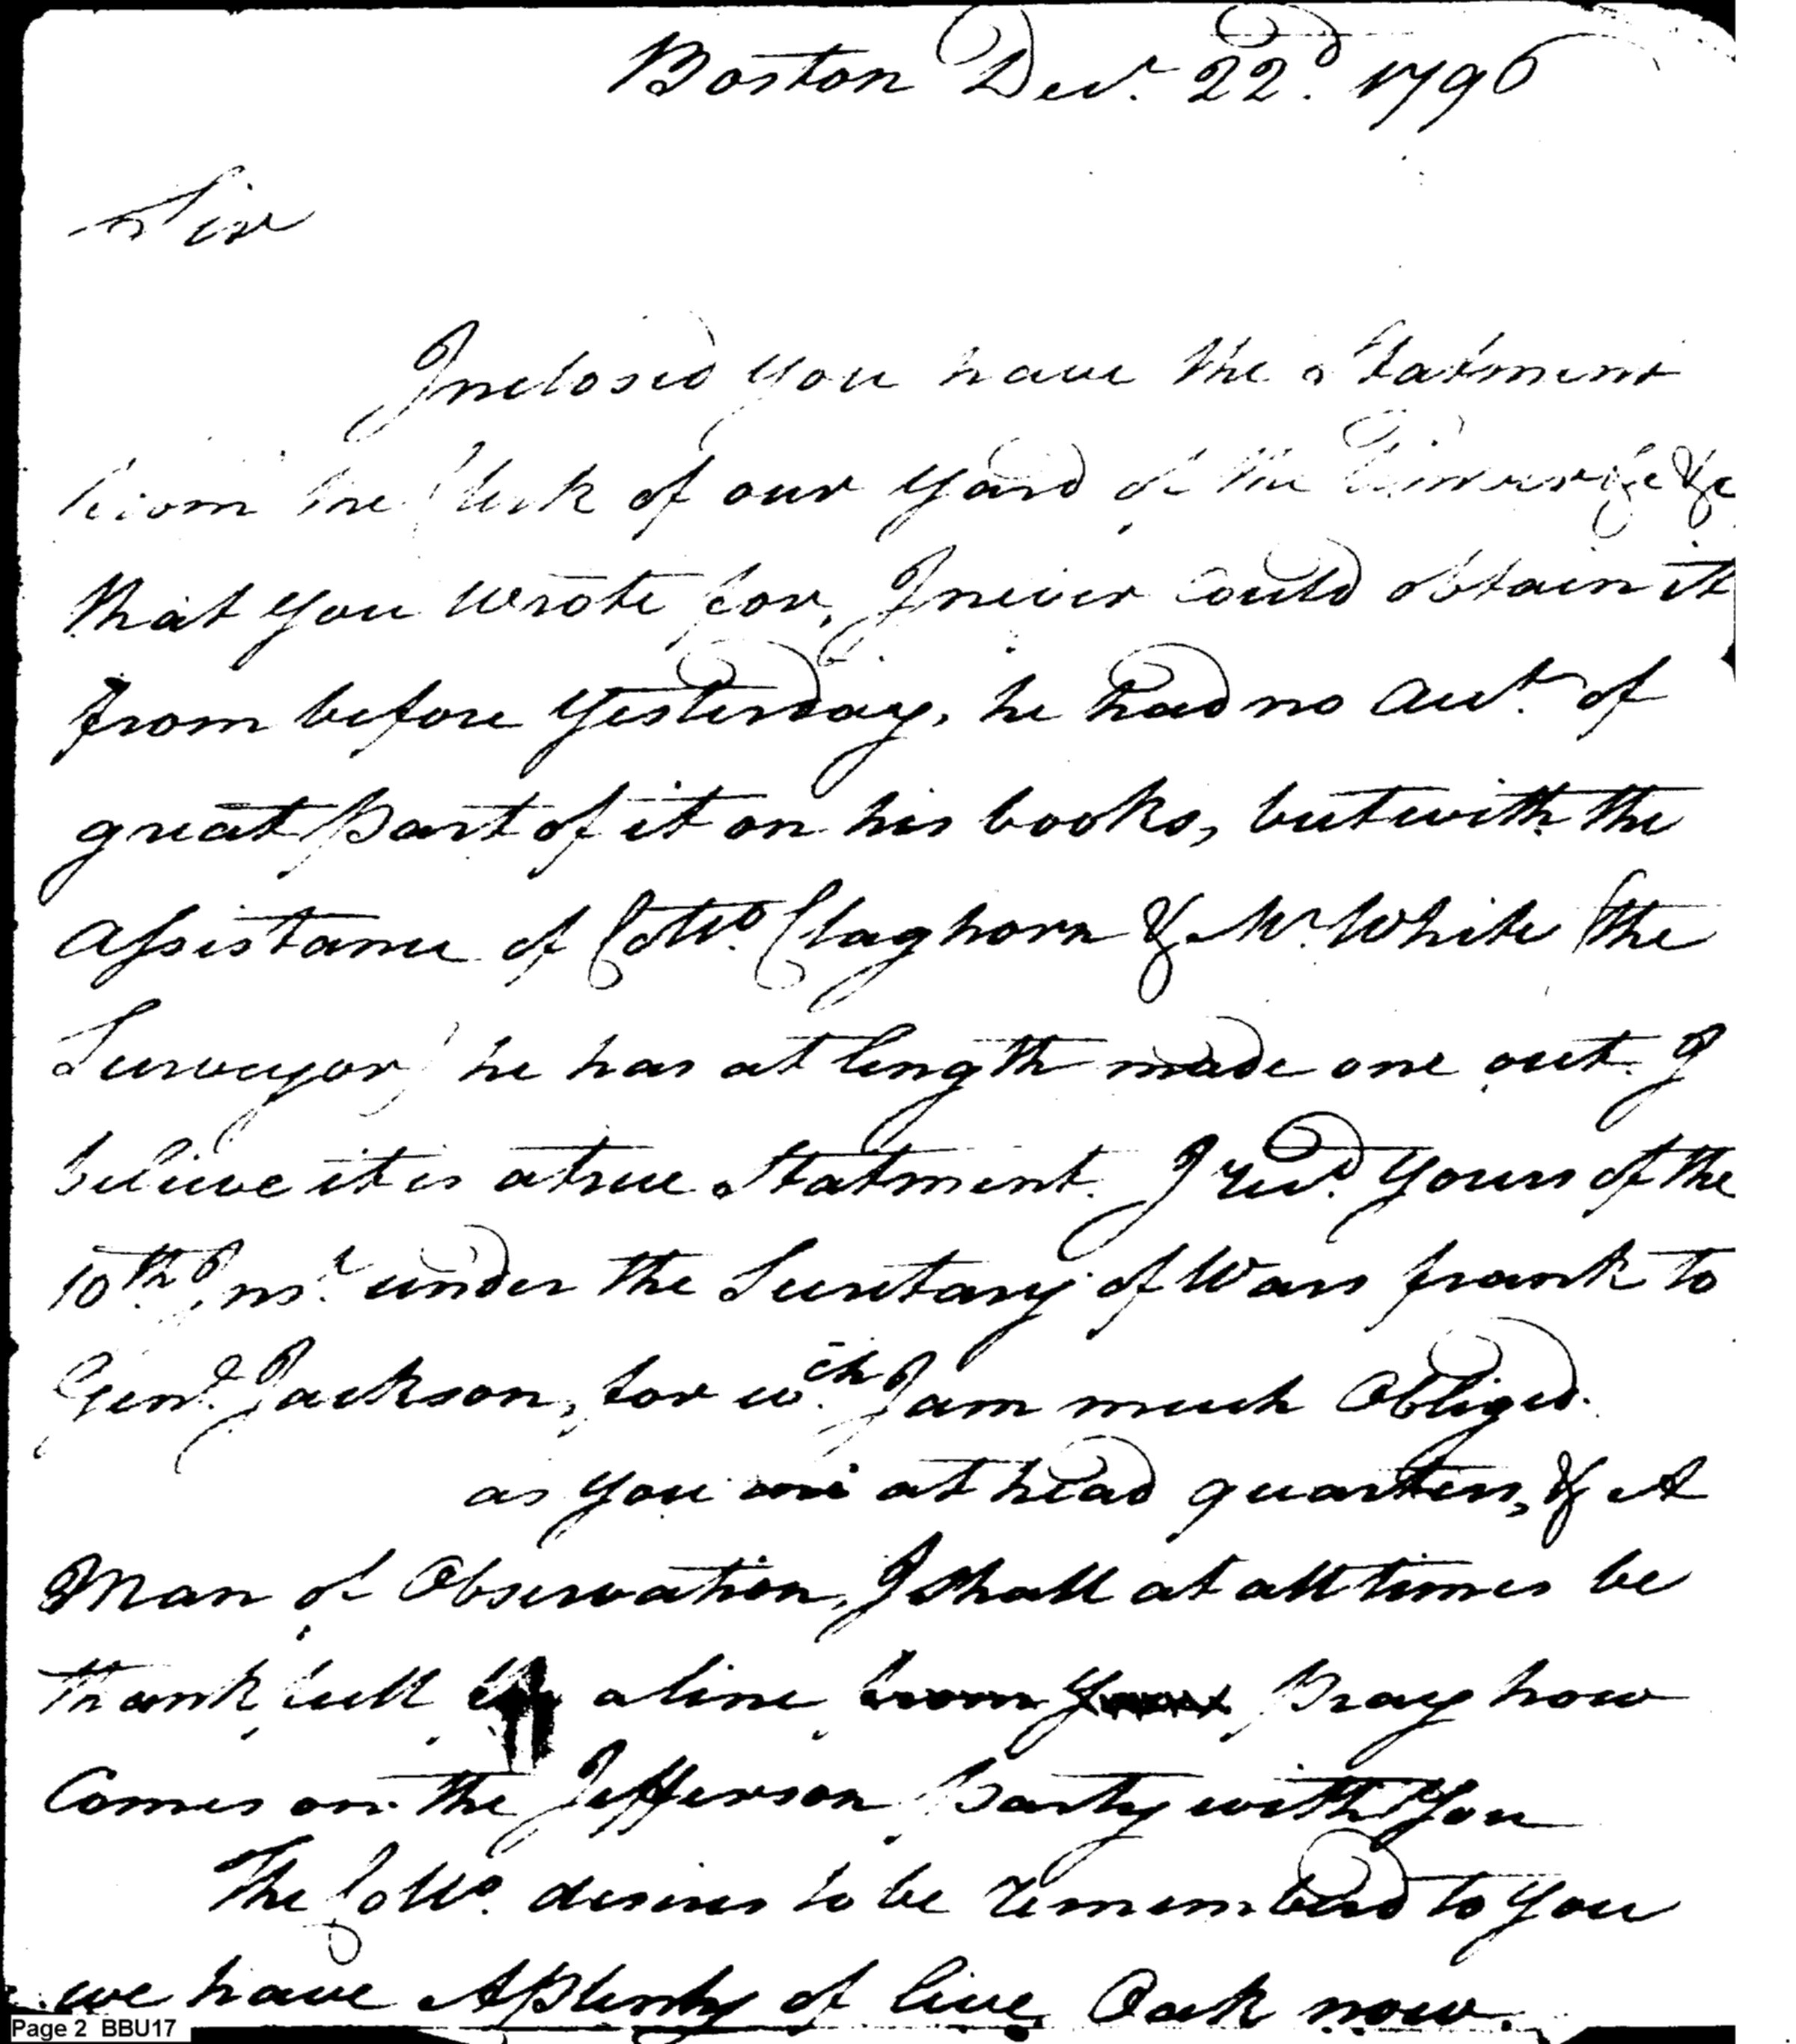 Boston Decr. 22d. 1796
Sir
Inclosed you have the Statment
from the Clerk of our Yard of the Timber &c &c
that you wrote for, I never Could obtain it
from before Yesterday, he had no acct. of
great part of it on his books, but with the
assistance of Collo. Claghorn & Mr. White (the
Surveyor) he has at length made one out. I
believe it is a true Statment. I recd. yours of the
10th Inst. under the Secretary of Wars frank to
Genl. Jackson, for wch. I am much Obliged.
as you are at head quarters, & A
Man of Observation, I shall at all times be
thankfull a line from Pray how
Comes on the Jefferson Party with You
The Collo. desires to be rememberd to You
we have A Plenty of live Oak now.
Page 2 BBU17